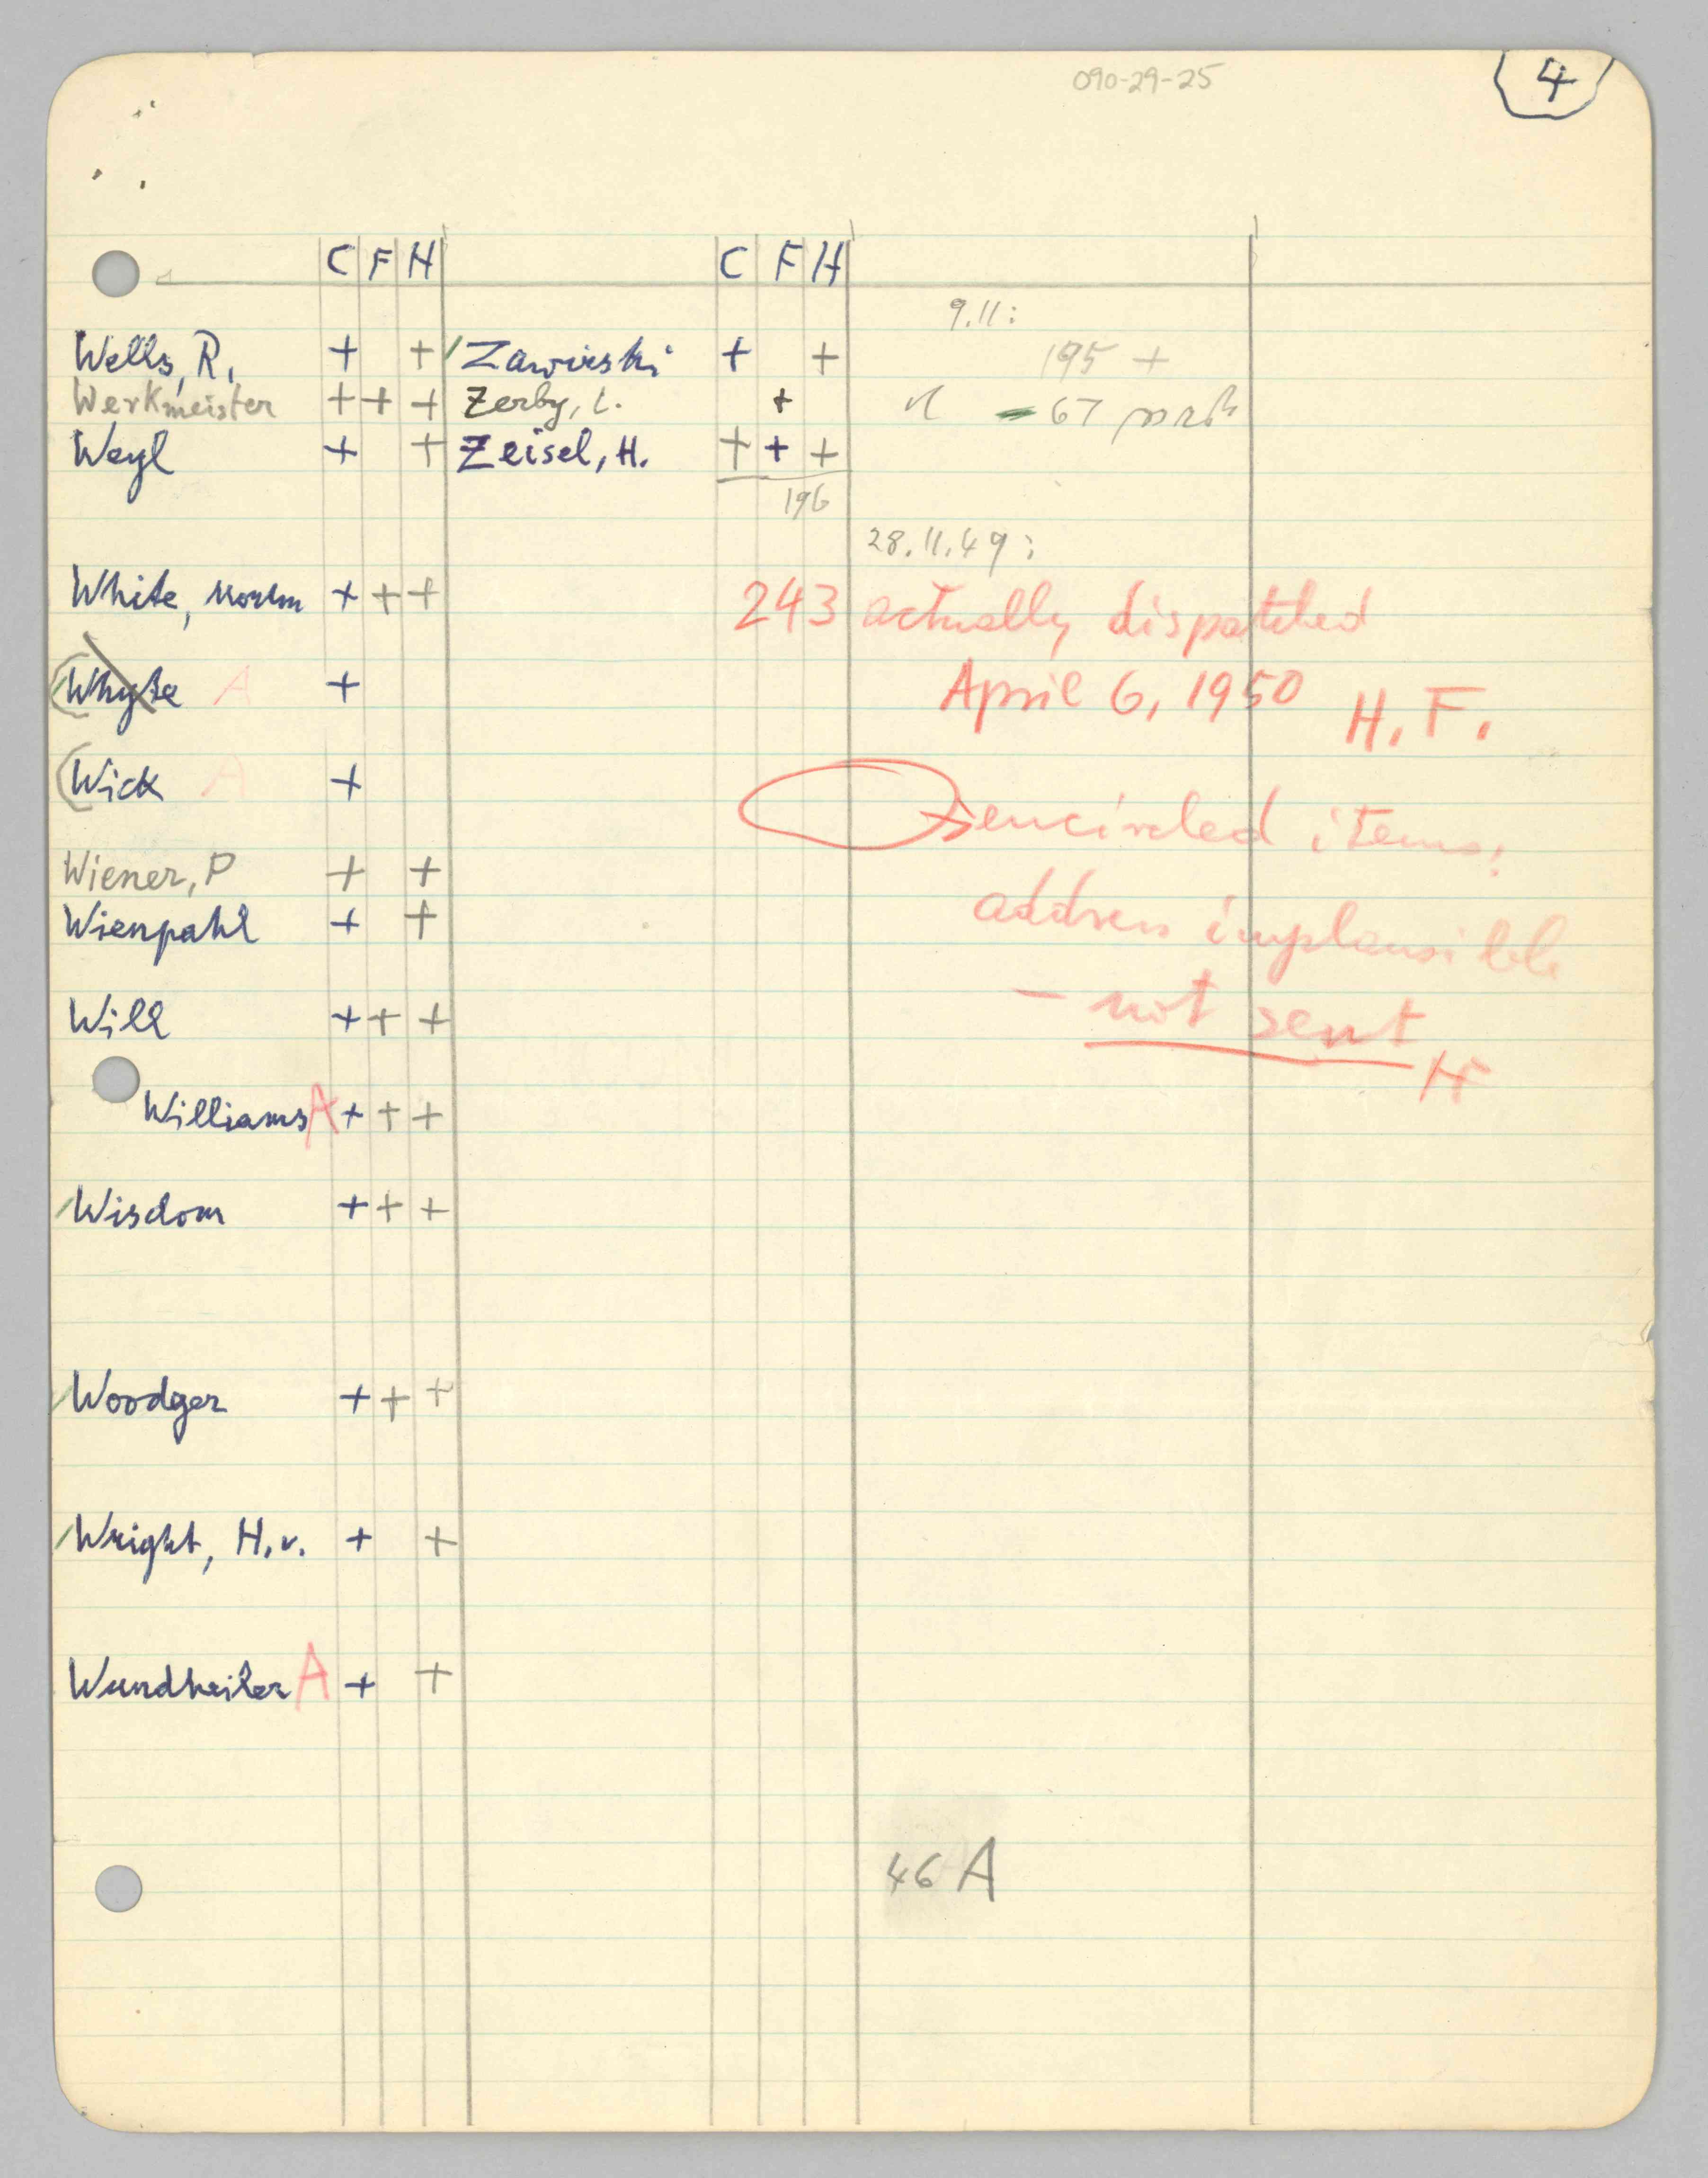 090-29-25
4
C F H C F H
9.11:
Wells, R. + + Zawirski + + 195 +
Werkmeister + + + Zerby, L. + - 67
Weyl + + Zeisel, H. + + +
196
28.11.49:
White, Morton + + + 243 actually dispatched
Whyte A + April 6, 1950 H. F.
Wick A + encircled items:
Wiener, P + + address implausible
Wienpahl + +
Will + + + - not sent
Williams A + + + HF
Wisdom + + +
Woodger + + +
Wright, H. v. + +
Wundheiler A + +
46 A